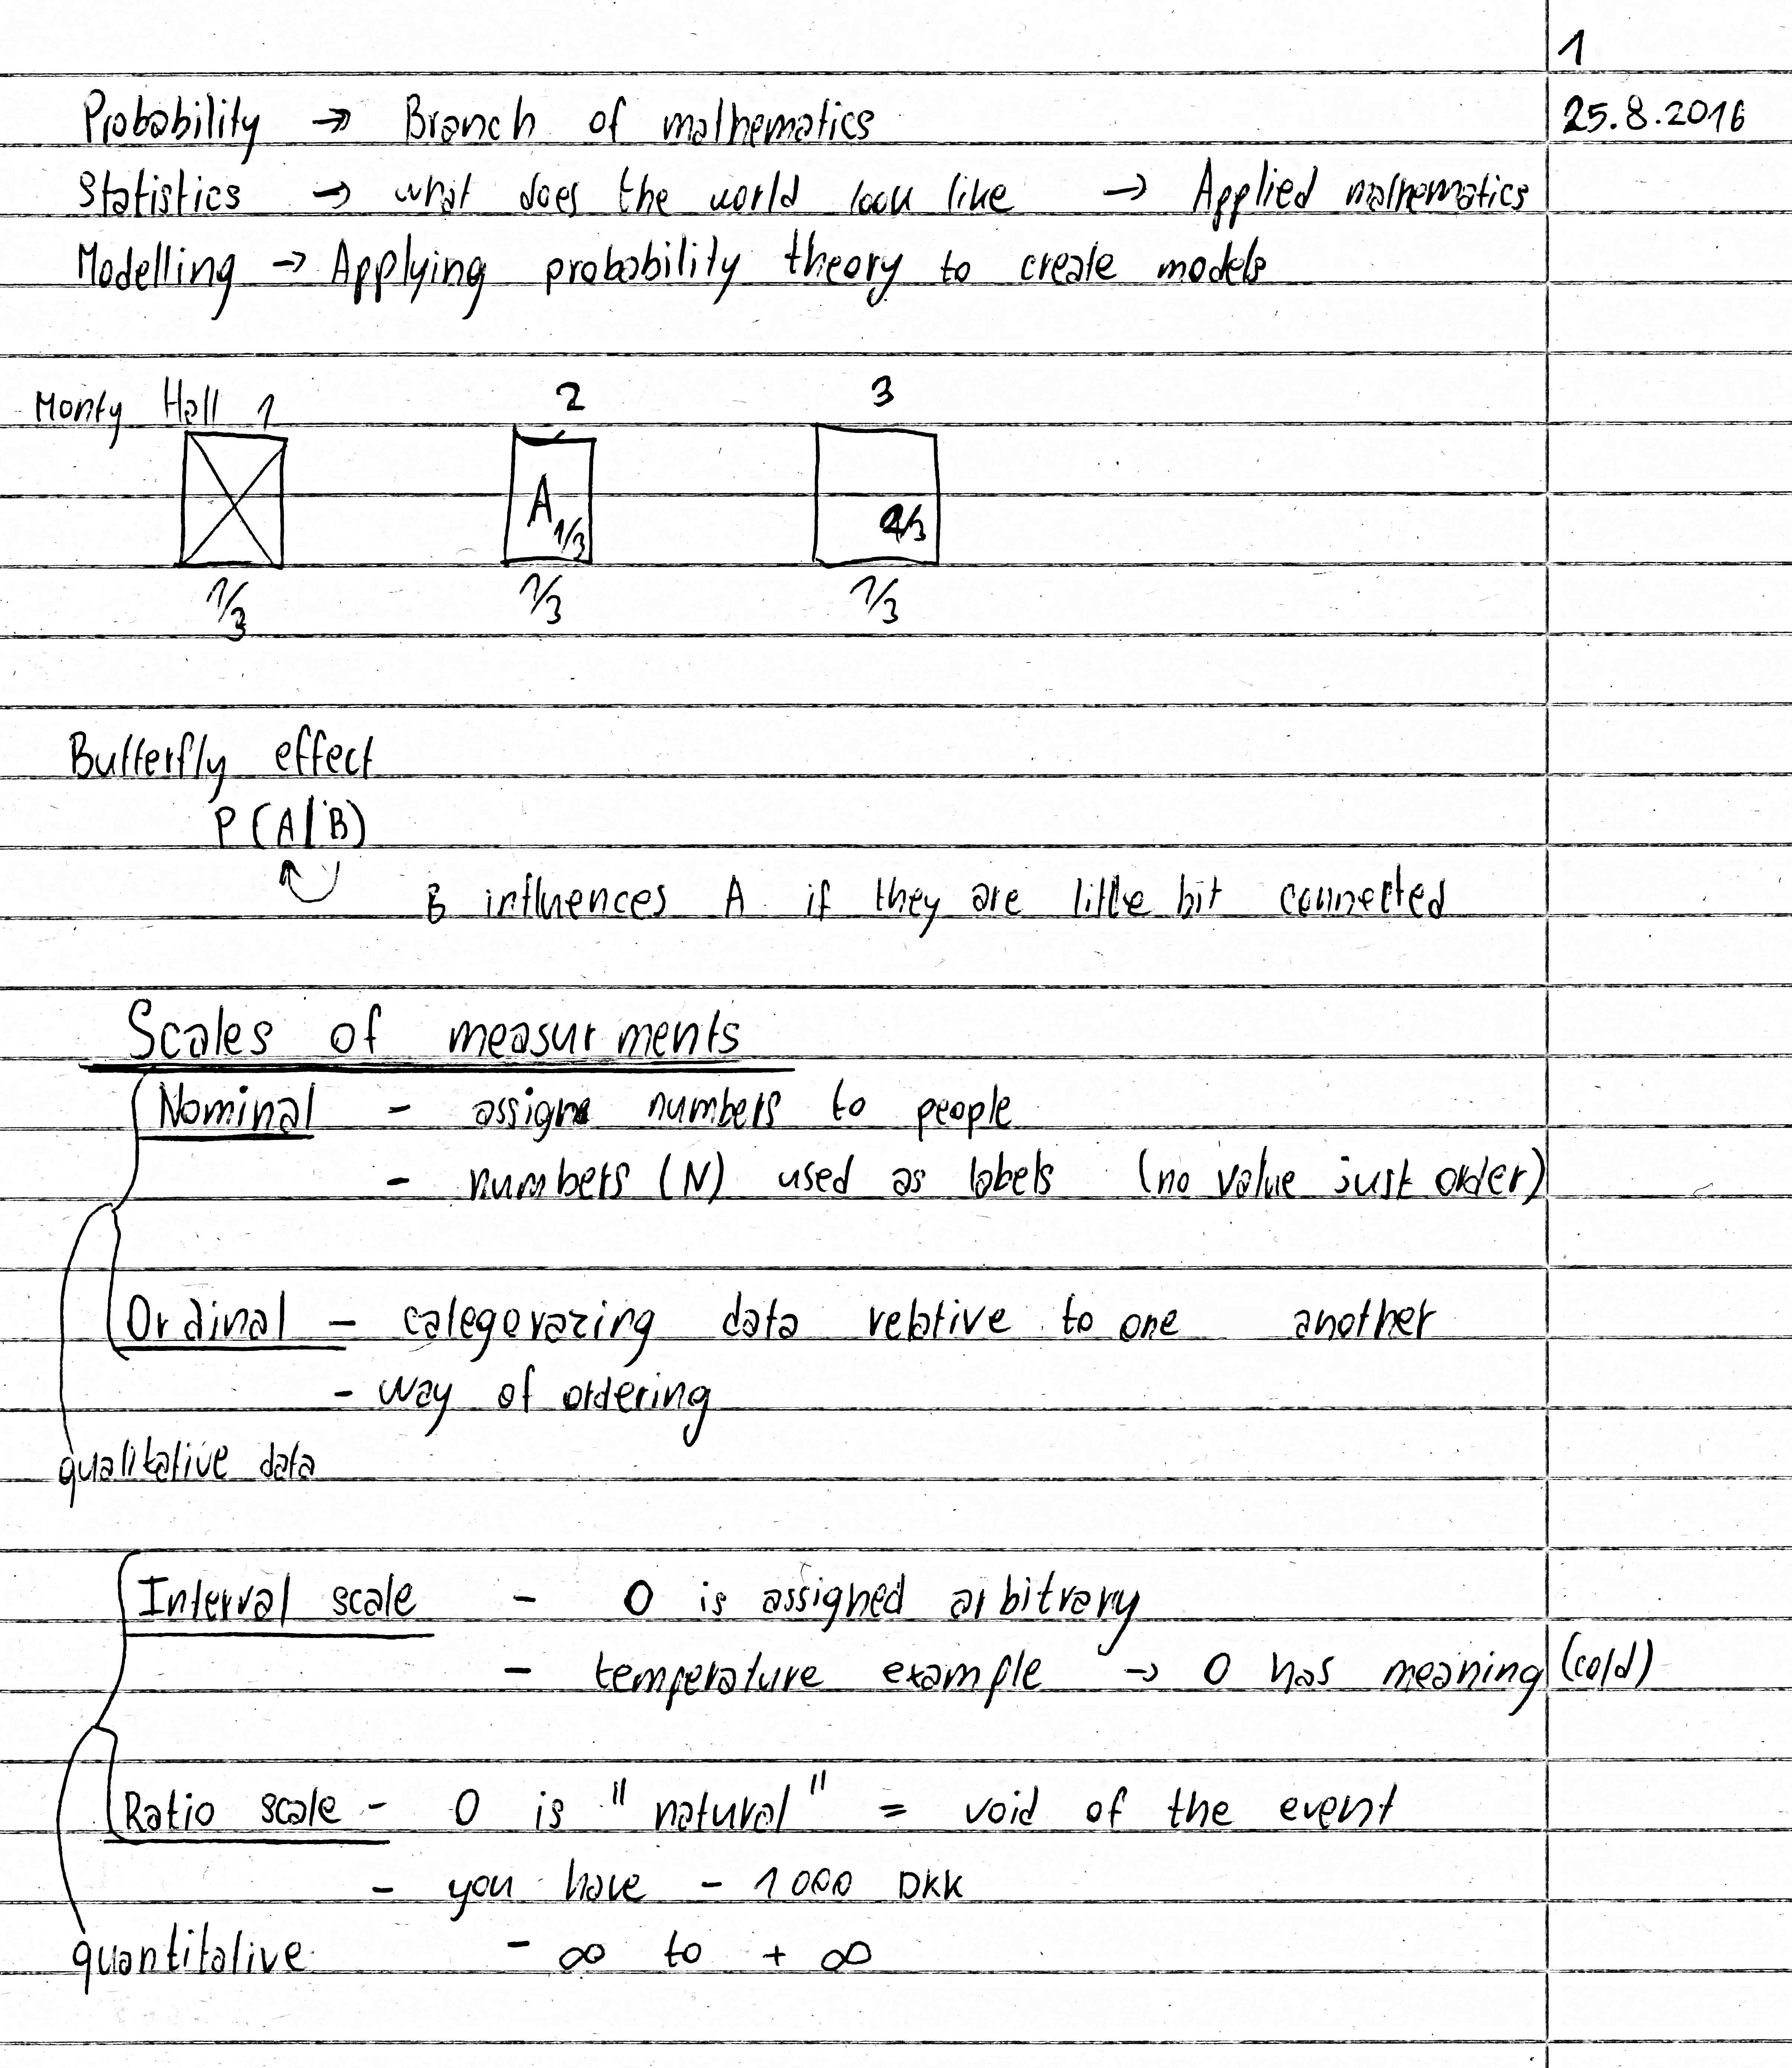 1
Probability → Branch of mathematics 25.8.2016
Statistics → what does the world look like → Applied mathematics
Modelling → Applying probability theory to create models
Monty Hall 1 2 3
A 1/3 2/3
1/3 1/3 1/3
Butterfly effect
P(A|B)
B influences A if they are little bit connected
Scales of measurments
Nominal - assign numbers to people
- numbers (N) used as labels (no value just order)
Ordinal - categorazing data relative to one another
- way of ordering
qualitative data
Interval scale - 0 is assigned arbitrary
- temperature example → 0 has meaning (cold)
Ratio scale - 0 is "natural" = void of the event
- you have - 1000 DKK
quantitative - ∞ to + ∞